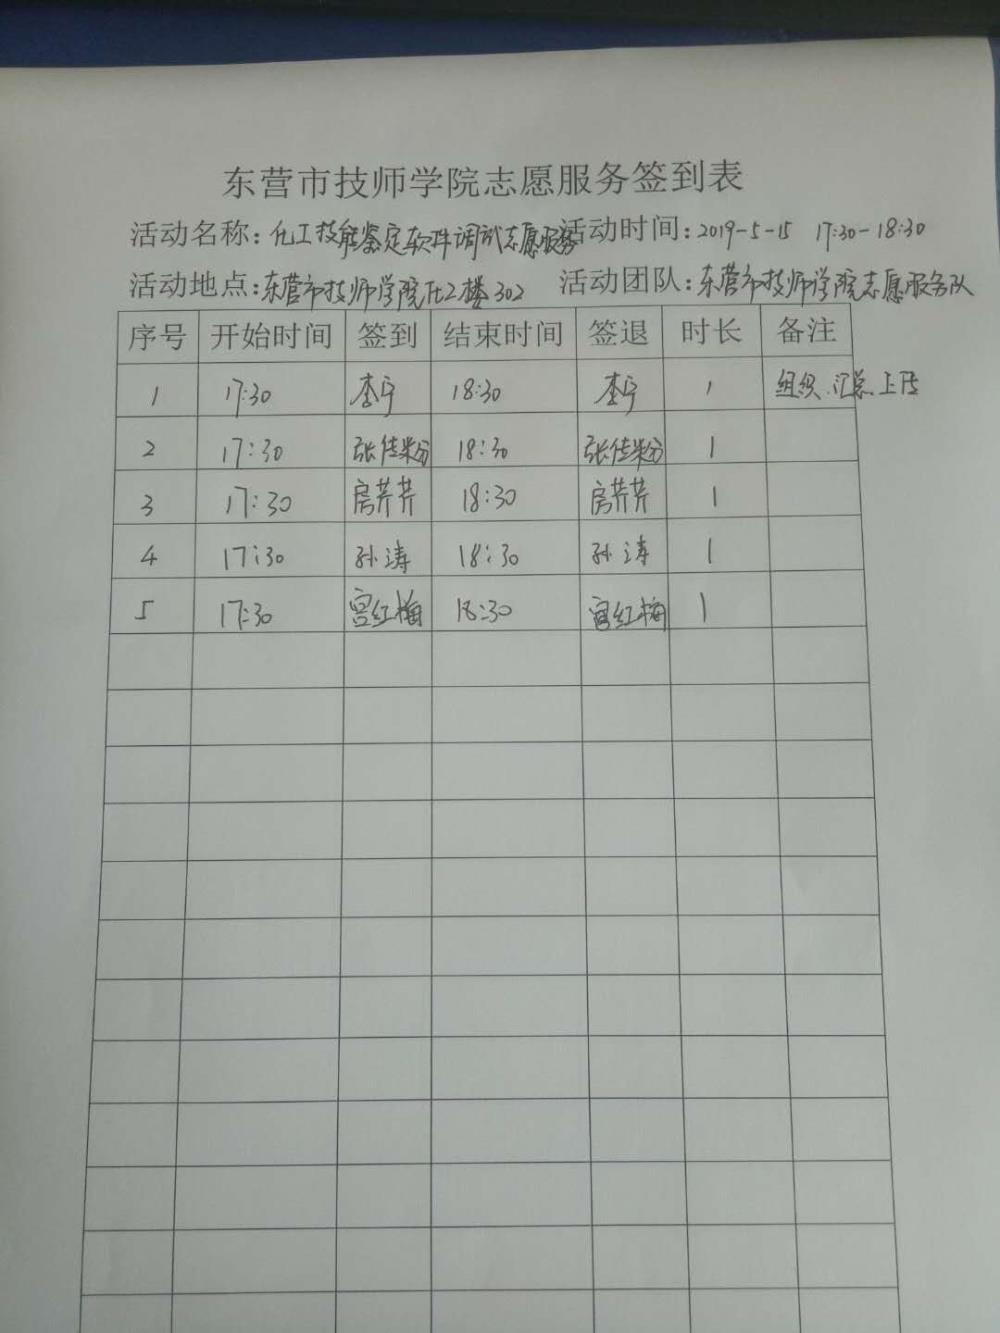 东营市技师学院志愿服务签到表
活动名称：化工技能鉴定软件调试志愿服务 活动时间：2019-5-15 17:30-18:30
活动地点：东营市技师学院化工楼302 活动团队：东营市技师学院志愿服务队
序号 开始时间 签到 结束时间 签退 时长 备注
1 17:30 李宁 18:30 李宁 1 组织、汇总、上传
2 17:30 张佳粉 18:30 张佳粉 1
3 17:30 房芹芹 18:30 房芹芹 1
4 17:30 孙涛 18:30 孙涛 1
5 17:30 宫红梅 18:30 宫红梅 1